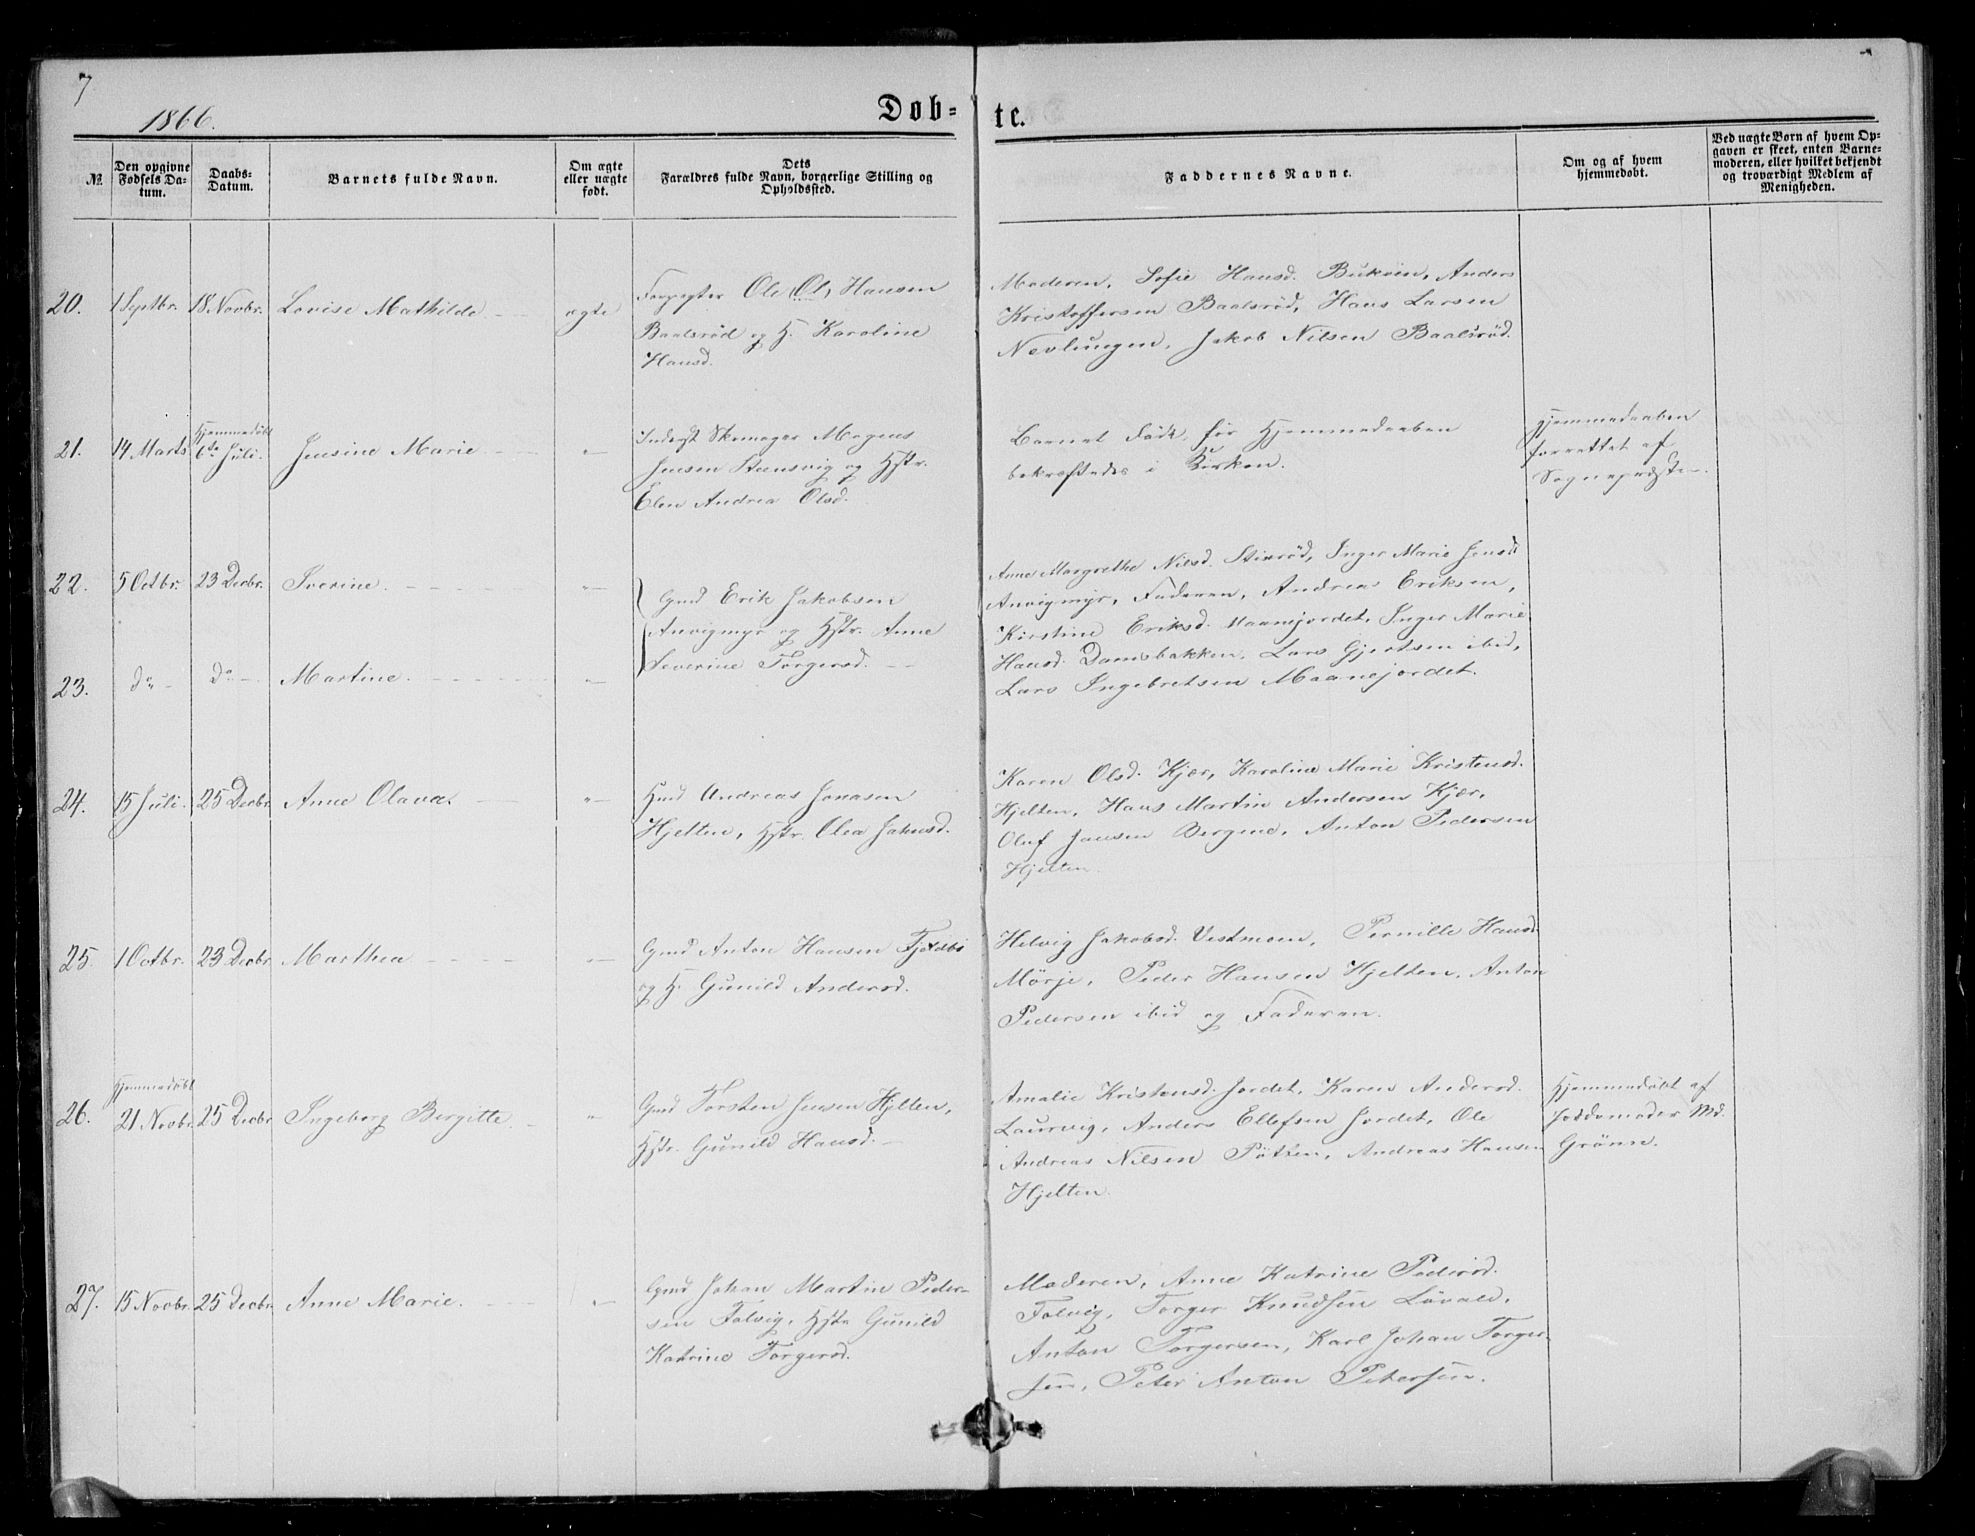 7
1866.
Døb-
te.
№
Den opgivne Fødsels Da-tum.
Daabs-Datum.
Barnets fulde Navn.
Om ægte eller uægte født.
Dets Forældres fulde Navn, borgerlige Stilling og Opholdssted.
Faddernes Navne.
Om og af hvem hjemmedøbt.
Ved uægte Børn af hvem Op-gaven er skeet, enten Barne-moderen, eller hvilket bekjendt og troværdigt Medlem af Menigheden.
20.
1 Septbr.
18 Novbr.
Lovise Mathilde
ægte
Forpagter Ole Ol, Hansen
Baalsrød og H. Karoline
Hansd.
Moderen, Sofie Hansd. Bukøien, Anders
Kristoffersen Baalsrød, Hans Larsen
Nevlungen, Jakob Nilsen Baalsrød.
21.
14 Marts
Hjemmedøbt
6te Juli.
Jensine Marie
"
Inderst Skomager Mogens
Jensen Steensvig og Hstr.
Elen Andrea Olsd.
Barnet døde, før Hjemmedaaben
bekræftedes i Kirken.
Hjemmedaaben
forrettet af
Sognepræsten.
22.
5 Octbr.
23 Decbr.
Iverine.
"
Gmd Erik Jakobsen
Anvigmyr og Hstr. Anne
Severine Torgersd.
Anne Margrethe Nilsd. Stixrød, Inger Marie Jensd.
Anvigmyr, Faderen, Andreas Eriksen,
Kirstine Eriksd. Maanejordet, Inger Marie
Hansd. Damsbakken, Lars Gjertsen ibid,
Lars Ingebretsen Maanejordet.
23.
do
do
Martine.
"
24.
15 Juli.
25 Decbr.
Anne Olava.
"
Hmd Andreas Jonasen
Hjelten, Hstr. Olea Johnsd.
Karen Olsd. Kjær, Karoline Marie Kristensd.
Hjelten, Hans Martin Andersen Kjær,
Oluf Jansen Bergene, Anton Pedersen
Hjelten.
25.
1 Octbr.
23 Decbr
Marthea
"
Gmd Anton Hansen Fjeldbo
og H. Gunild Andersd.
Helvig Jakobsd. Vestmoen, Pernille Hansd.
Mørje, Peder Hansen Hjelten, Anton
Pedersen ibid og Faderen.
26.
Hjemmedøbt
21 Novbr.
25 Decbr
Ingeborg Bergitte.
"
Gmd Torsten Jensen Hjelten,
Hstr. Gunild Hansd.
Amalie Kristensd. Jordet, Karen Andersd.
Laurvig, Anders Ellefsen Jordet, Ole
Andreas Nilsen Pøtten, Andreas Hansen
Hjelten.
Hjemmedøbt af
Jordemoder Md.
Grønn.
27.
15 Novbr.
25 Decbr.
Anne Marie.
"
Gmd Johan Martin Peder-
sen Falvig, Hstr Gunild
Katrine Torgersd.
Moderen, Anne Katrine Pedersd.
Falvig, Torger Knudsen Løvald,
Anton Torgersen, Karl Johan Torger-
sen, Peter Anton Petersen.